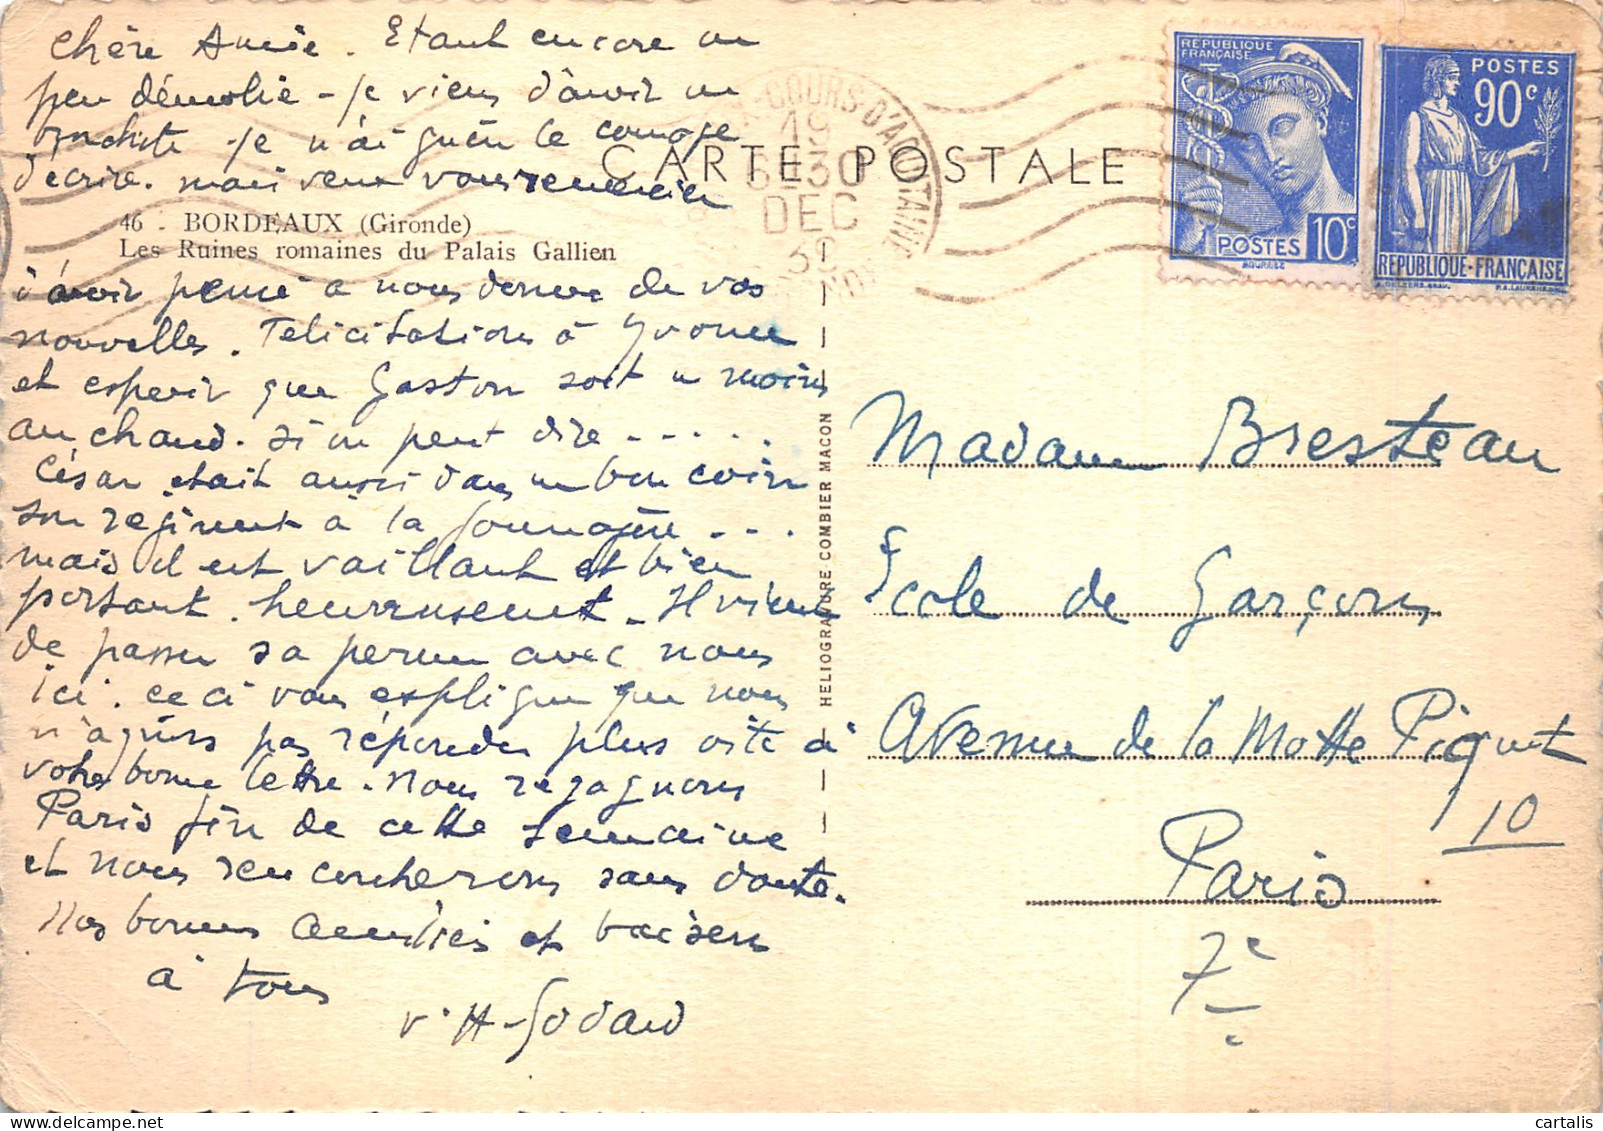 Chère Amie. Etant encore un
peu démolie - je viens d'avoir un
bronchite je n'ai guère le courage
d'écrire. mais veux vous remercier
46 - BORDEAUX (Gironde)
Les Ruines romaines du Palais Gallien
d'avoir pensé à nous donner de vos
nouvelles. Félicitations à Yvonne
et espérer que Gaston soit au moins
au chaud. si on peut dire . . . . .
César était aussi dans un bon coin
son régiment à la . . .
mais il est vaillant et bien
portant. heureusement. Il vient
de passer sa perm avec nous
ici. ceci vous explique que nous
n'ayions pas répondu plus vite à
votre bonne lettre. Nous regagnons
Paris fin de cette semaine
et nous rencontrerons sans doute.
Nos bonnes amitiés et baisers
à tous
H. Godard
CARTE POSTALE
COURS-D'AQUITAINE
19
6-30
DEC
39
REPUBLIQUE
FRANÇAISE
POSTES 10c
POSTES
90c
REPUBLIQUE-FRANÇAISE
HELIOGRAVURE COMBIER MACON
Madame Bresteau
Ecole de Garçons
Avenue de la Motte Piquet
10
Paris
7e
cartalis